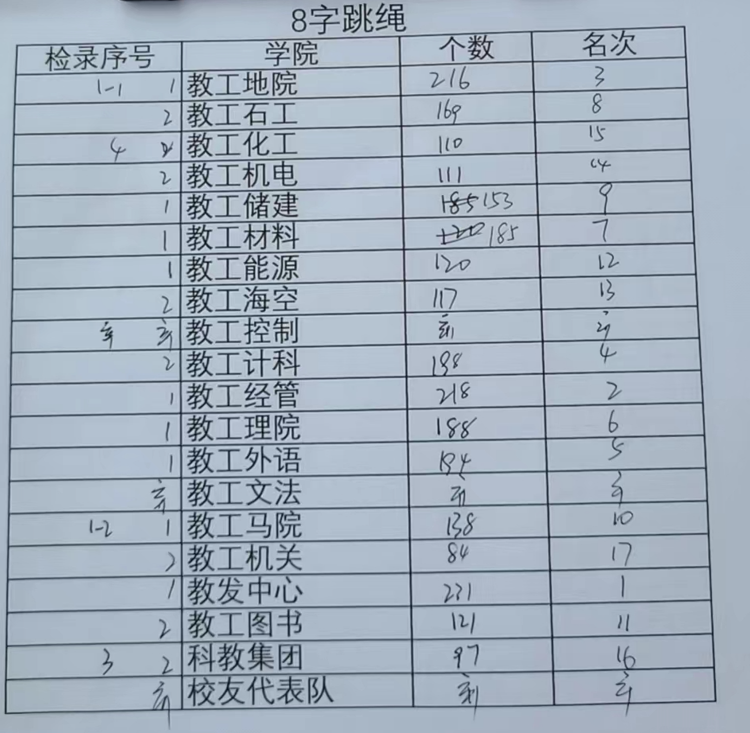 8字跳绳
检录序号 学院 个数 名次
1-1 1 教工地院 216 3
2 教工石工 169 8
4 教工化工 110 15
2 教工机电 111 14
1 教工储建 185 153 9
1 教工材料 185 7
1 教工能源 120 12
2 教工海空 117 13
弃 弃 教工控制 弃 弃
2 教工计科 198 4
1 教工经管 218 2
1 教工理院 188 6
1 教工外语 194 5
弃 教工文法 弃 弃
1-2 1 教工马院 138 10
2 教工机关 84 17
1 教发中心 231 1
2 教工图书 121 11
3 2 科教集团 97 16
弃 校友代表队 弃 弃